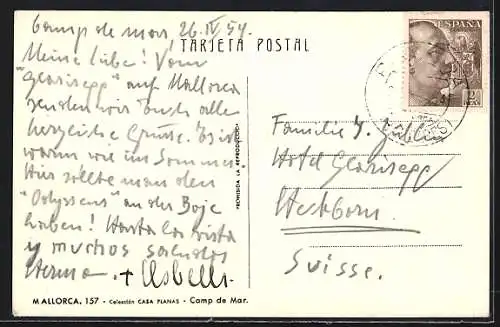 Camp de mar, 26.IV.54.
TARJETA POSTAL
Meine Liebe! Vom
"Glarisegg" auf Mallorca
senden wir Euch alle
herzliche Grüsse. Es ist
warm wie im Sommer.
Hier sollte man den
"Odysseus" an der Boje
haben! Hasta la vista
y muchos saludos
Herma. +
PROHIBIDA LA REPRODUCCIÓN
ESPAÑA
2
Familie J.
Hotel Glarisegg
Steckborn.
Suisse.
MALLORCA, 157 - Colección CASA PLANAS - Camp de Mar.